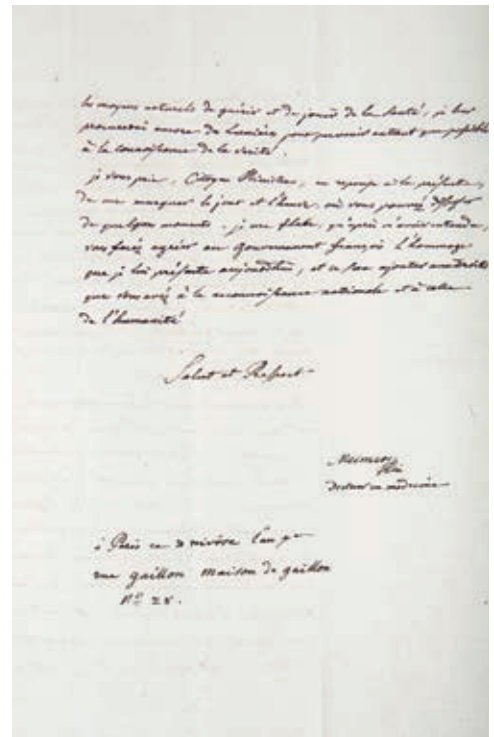 les moyens naturels de guérir et de jouir de la santé, je leur
procurerai encore des lumières pour parvenir autant que possible
à la connoissance de la vérité.
je vous prie, Citoyen Ministre, en reponse à la présente,
de me marquer le jour et l'heure, où vous pouvez disposer
de quelques moments. je me flatte, qu'après m'avoir entendu,
vous ferez agréer au Gouvernement françois l'hommage
que je lui présente aujourd'hui, et ce sera ajouter aux droits
que vous avez à la reconnoissance nationale et à celle
de l'humanité
Salut et Respect
Mesmer
Docteur en médecine
à Paris ce nivôse l'an
rue gaillon maison de gaillon
N° 28.